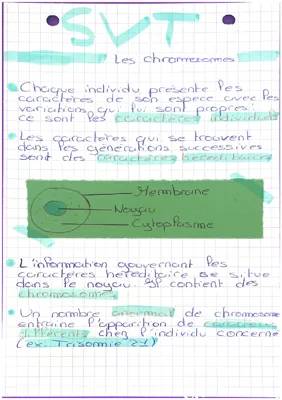 SVT
Les chromosomes
Chaque individu présente les
caractères de son espèce avec les
variations qui lui sont propres:
ce sont les caractères individuels
Les caractères qui se trouvent
dans les générations successives
sont des caractères héréditaires
Membrane
Noyau
Cytoplasme
L'information gouvernant les
caractères héréditaire se situe
dans le noyau. Il contient des
chromosomes
Un nombre anormal de chromosome
entraine l'apparition de caractères
différents chez l'individu concerné
(ex. Trisomie 21)